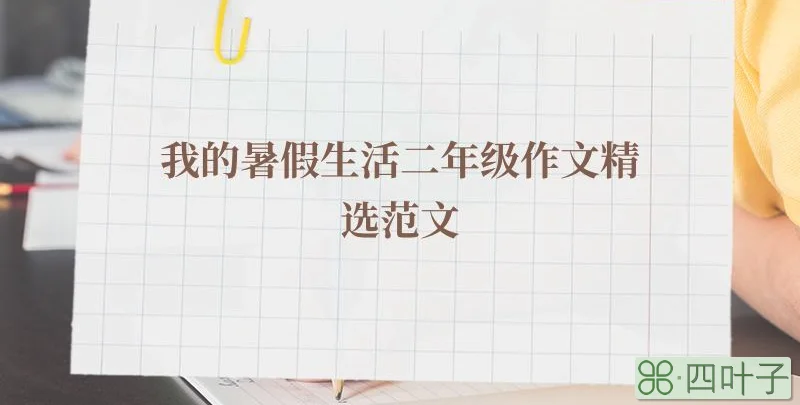 我的暑假生活二年级作文精
选范文
四叶子